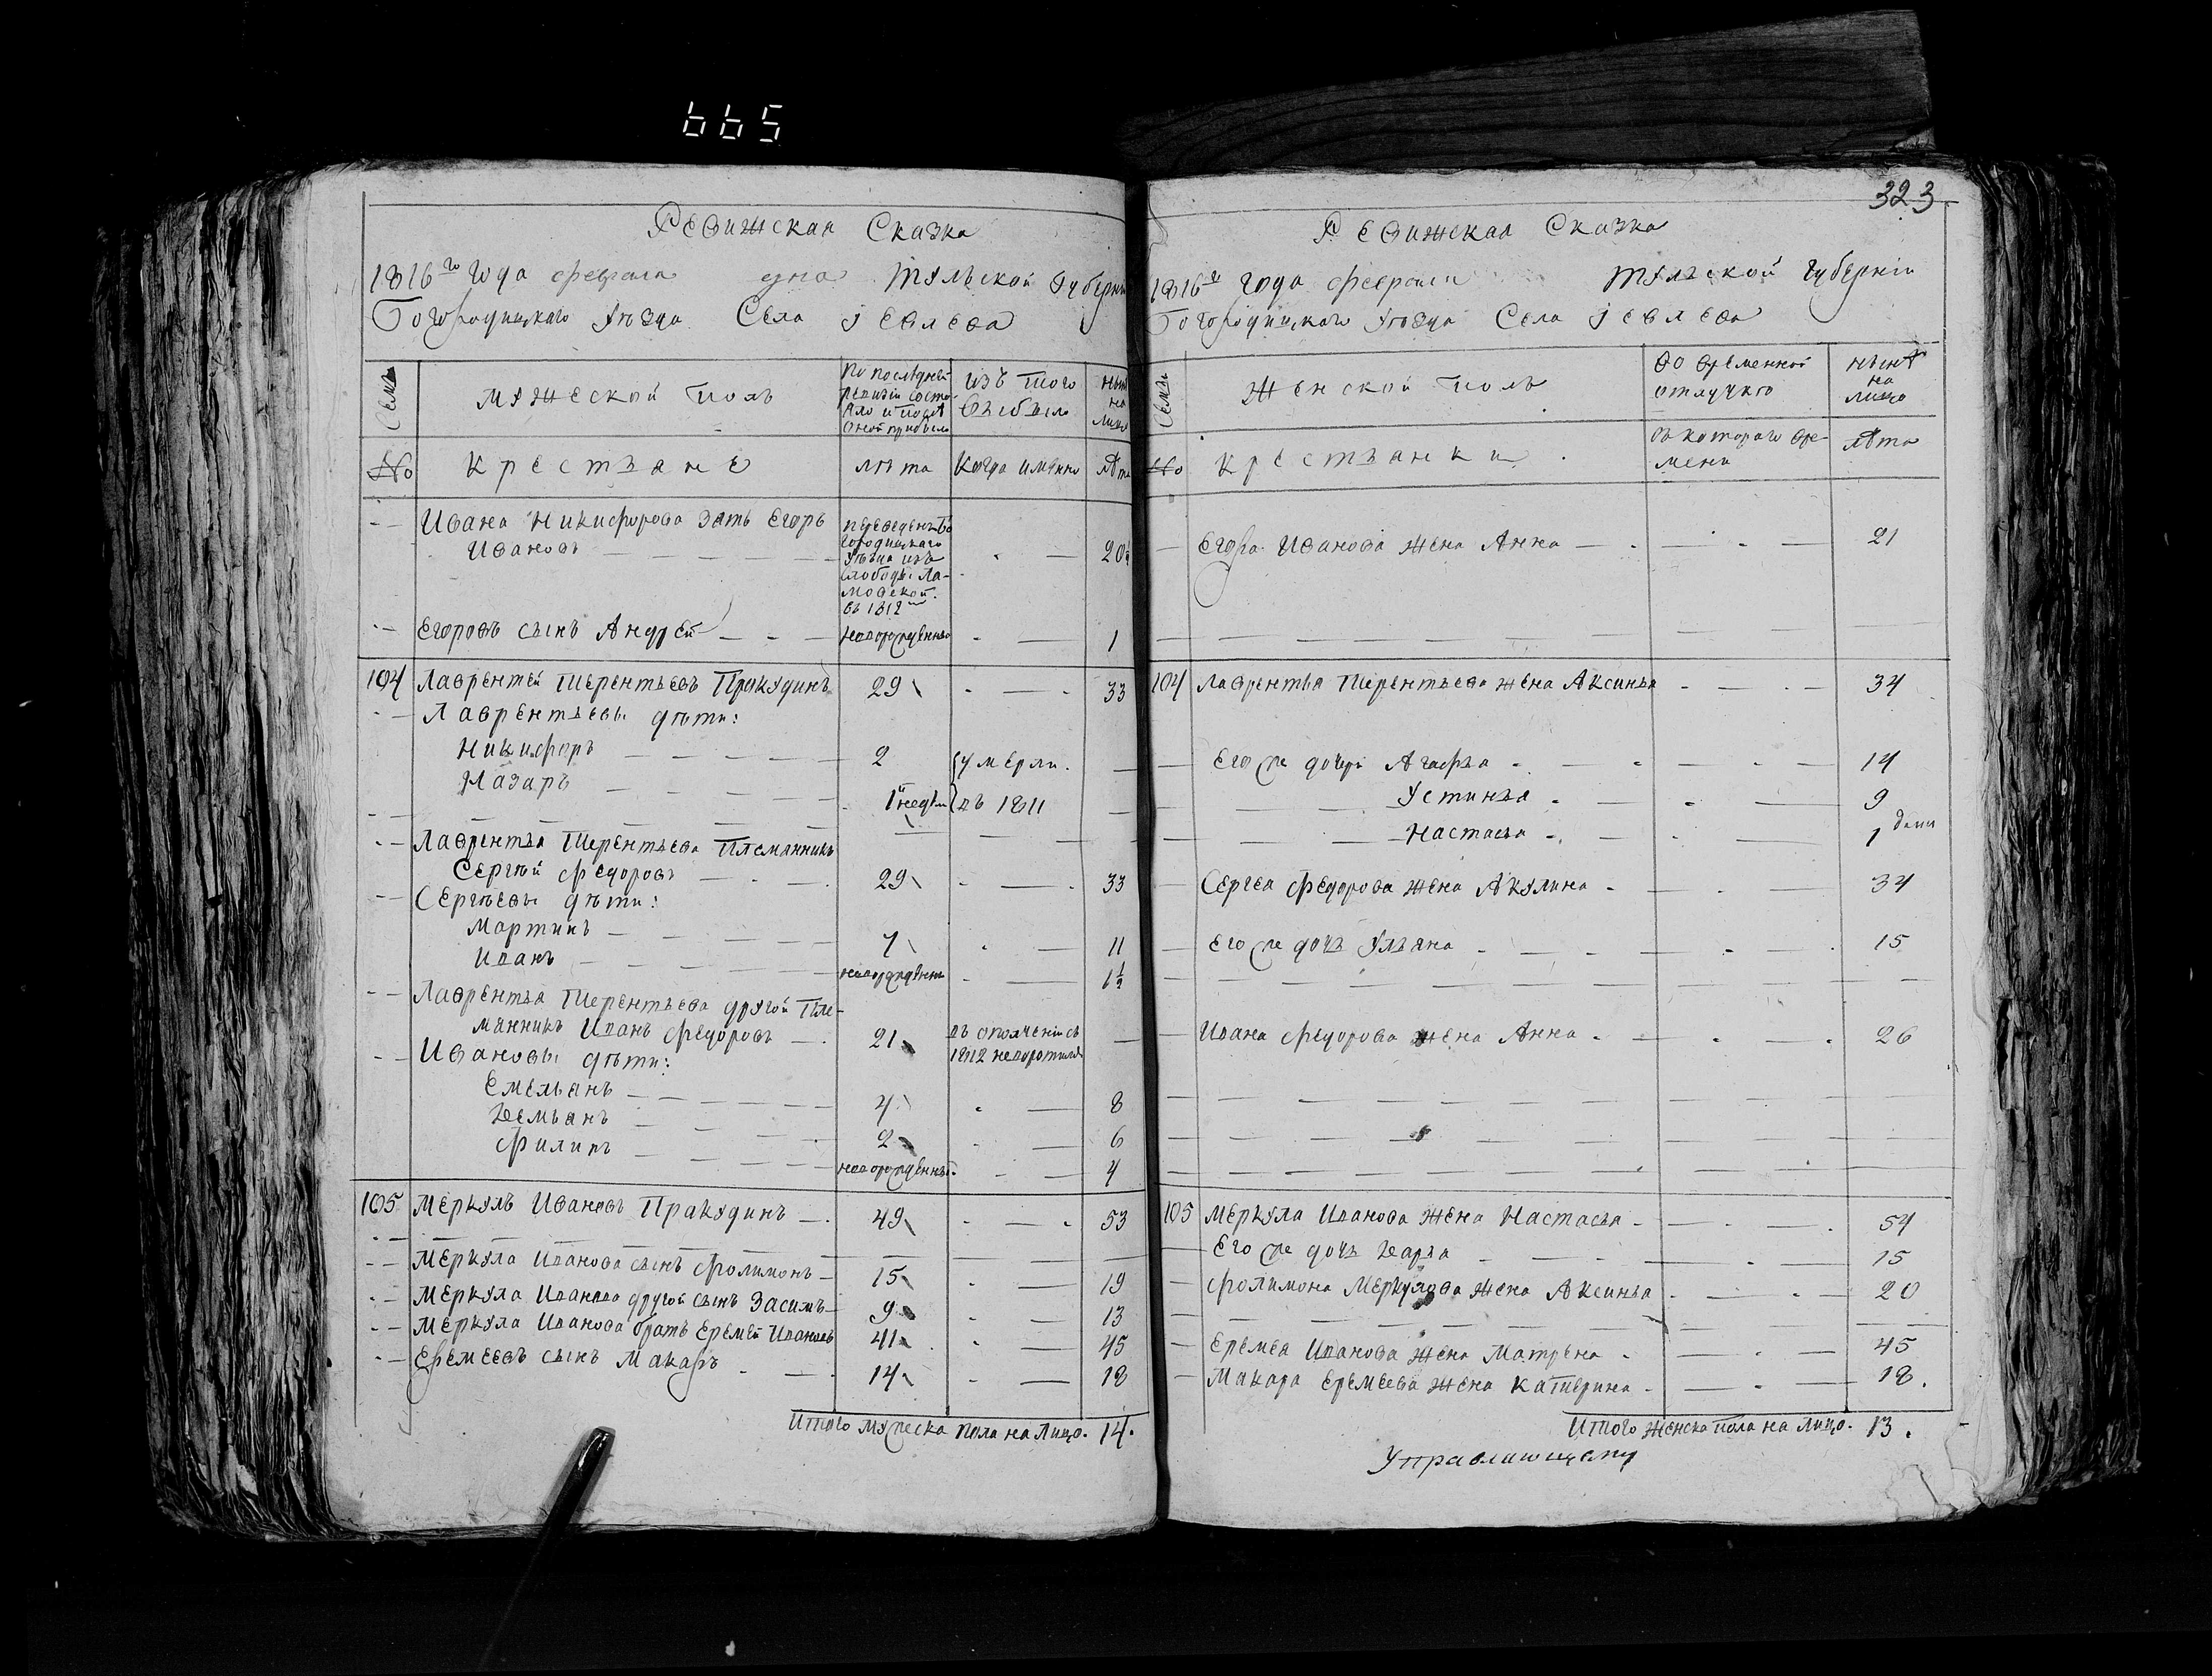 665
Ревижская Сказка
1816го года февраля дня Тульской губерни
Богородицкаго уѣзда Села Iевлева
Семьи
мужеской полъ
По последней
ревизiи состо-
яло и после
оной прибыло
изъ того
выбыло
ныне
на
лицо
№
крестьяне
лѣта
Когда имянно
лѣта
Ивана Никифорова зять Егоръ
Ивановъ
переведенъ Бо
городицкаго
уѣзда изъ
слободы Ла-
мовской
въ 1812м
20½
Егоровъ сынъ Андрей
новорожденны
1
104 Лаврентей Терентьевъ Пракудинъ 29 33
Лаврентьевы дѣти:
Никифоръ 2 умерли
Лазарь 1 недѣли въ 1811
Лаврентья Терентьева Племянникъ
Сергѣй Федоровъ 29 33
Сергѣевы дѣти:
Мартинъ 7 11
Иванъ новорожденны 1½
Лаврентья Терентьева другой Пле-
мянникъ Иванъ Федоровъ 21 въ ополченiи съ
1812 неворотился
Ивановы дѣти:
Емельянъ 4 8
Демьянъ 2 6
Филипъ новорожденны 4
105 Меркулъ Ивановъ Пракудинъ 49 53
Меркула Иванова сынъ Фолимонъ 15 19
Меркула Иванова другой сынъ Засимъ 9 13
Меркула Иванова братъ Еремей Ивановъ 41 45
Еремеевъ сынъ Макаръ 14 18
Итого мужеска пола на лицо. 14.
323
Ревижская Сказка
1816го года февраля Тульской губернiи
Богородицкаго уѣзда Села Iевлева
Семьи
женской полъ
Во временной
отлучке
ныне
на
лицо
№
крестьянки
съ котораго вре-
мени
лѣта
Егора Иванова жена Анна 21
104 Лаврентья Терентьева жена Аксинья 34
Его же дочери Агафья 14
Устинья 9
Настасья 1
Сергея Федорова жена Акулина 34
Его же дочь Ульяна 15
Ивана Федорова жена Анна 26
105 Меркула Иванова жена Настасья 54
Его же дочь Дарья 15
Фолимона Меркулова жена Аксинья 20
Еремея Иванова жена Матрена 45
Макара Еремеева жена Катерина 18.
Итого женска пола на лицо. 13.
Управляющему